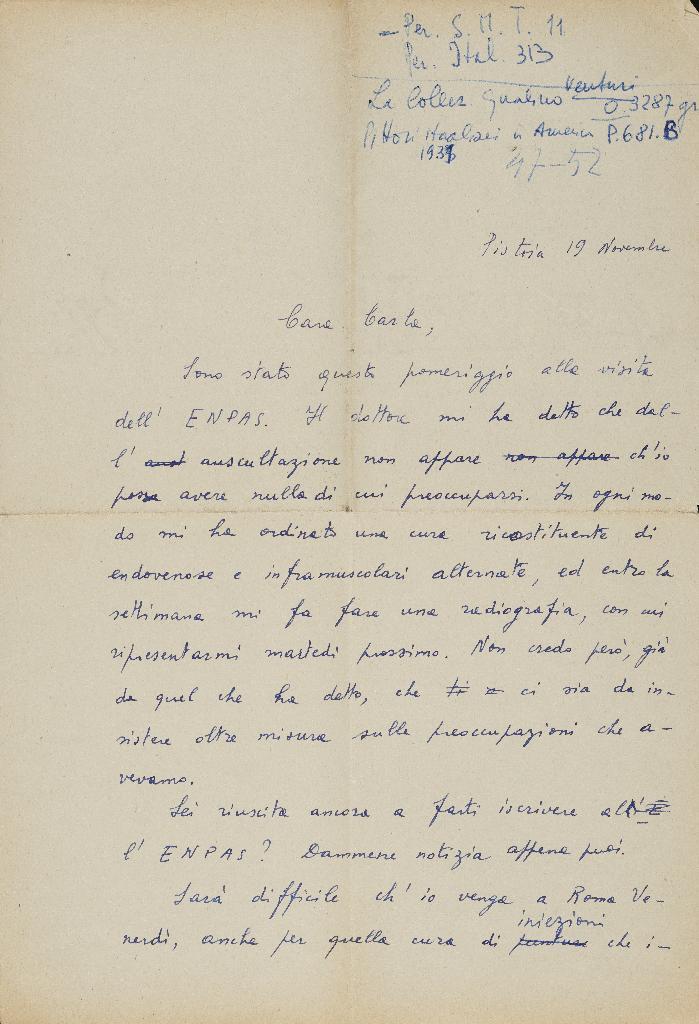 - Per. S. M. T. 11
Per. Ital. 313
La Collez. Gualino Venturi O.3287 gr
Pittori Italiani in America P.681.B
1931 47-52
Pistoia 19 Novembre
Cara Carla,
Sono stato questo pomeriggio alla visita
dell' ENPAS. Il dottore mi ha detto che dal-
l' auscultazione non appare non appare ch'io
possa avere nulla di cui preoccuparsi. In ogni mo-
do mi ha ordinato una cura ricostituente di
endovenose e inframuscolari alternate, ed entro la
settimana mi fa fare una radiografia, con cui
ripresentarmi martedì prossimo. Non credo però, già
da quel che ha detto, che ci sia da in-
sistere oltre misura sulle preoccupazioni che a-
vevamo.
Sei riuscita ancora a farti iscrivere al
l' ENPAS? Dammene notizia appena puoi.
Sarà difficile ch' io venga a Roma Ve-
nerdì, anche per quella cura di punture iniezioni che i-